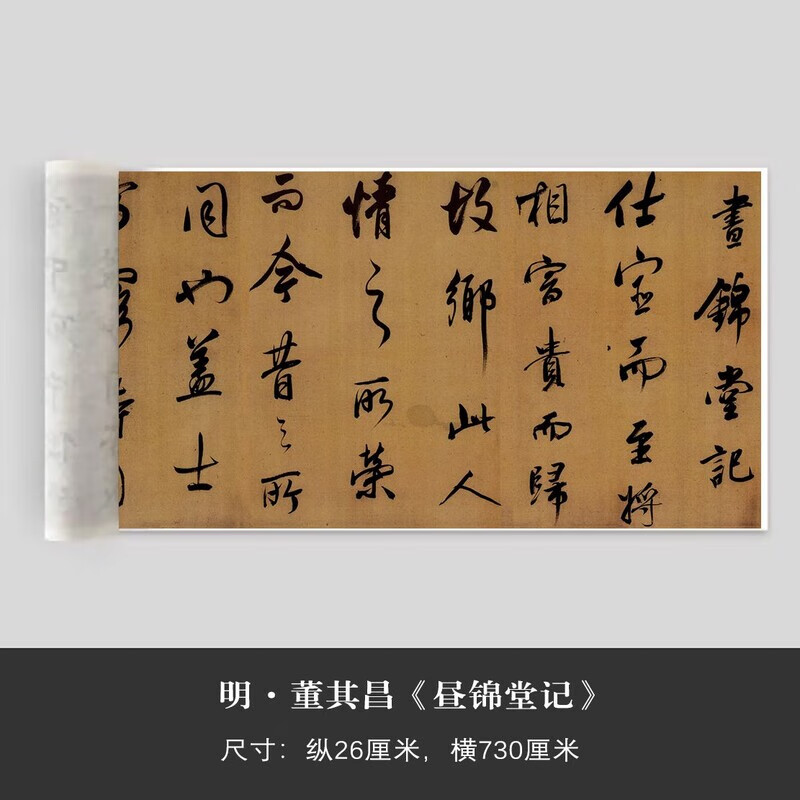 晝錦堂記
仕宦而至將
相富貴而歸
故鄉此人
情之所榮
而今昔之所
同也蓋士
明·董其昌《昼锦堂记》
尺寸：纵26厘米，横730厘米